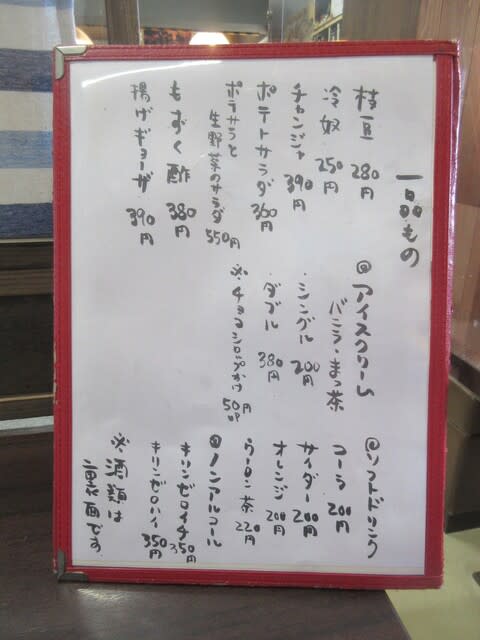 一品もの
枝豆 280円
冷奴 250円
チャンジャ 390円
ポテトサラダ 360円
ポテサラと
生野菜のサラダ 550円
もずく酢 380円
揚げギョーザ 390円
◎アイスクリーム
バニラ・まっ茶
・シングル 200円
・ダブル 380円
※チョコシロップかけ 50円
◎ソフトドリンク
コーラ 200円
サイダー 200円
オレンジ 200円
ウーロン茶 220円
◎ノンアルコール
キリンゼロイチ 350円
キリンゼロハイ 350円
※酒類は
裏面です